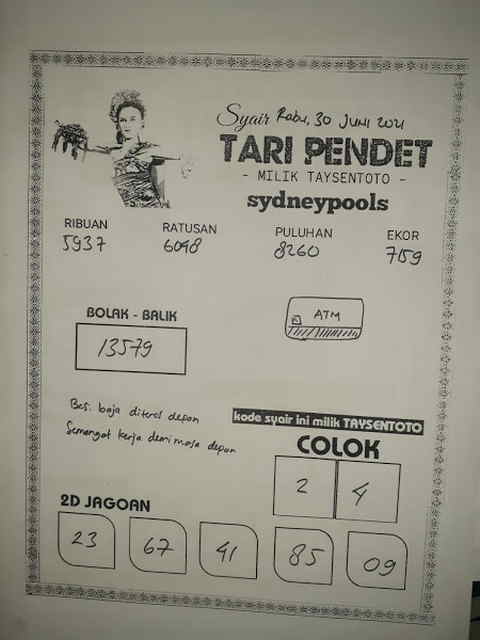 Syair Rabu, 30 Juni 2021
TARI PENDET
- MILIK TAYSENTOTO -
sydneypools
RIBUAN RATUSAN PULUHAN EKOR
5937 6098 8260 7159
ATM
BOLAK - BALIK
13579
Besi baja diteral depan
Semangat kerja demi masa depan
kode syair ini milik TAYSENTOTO
COLOK
2 4
2D JAGOAN
23 67 41 85 09